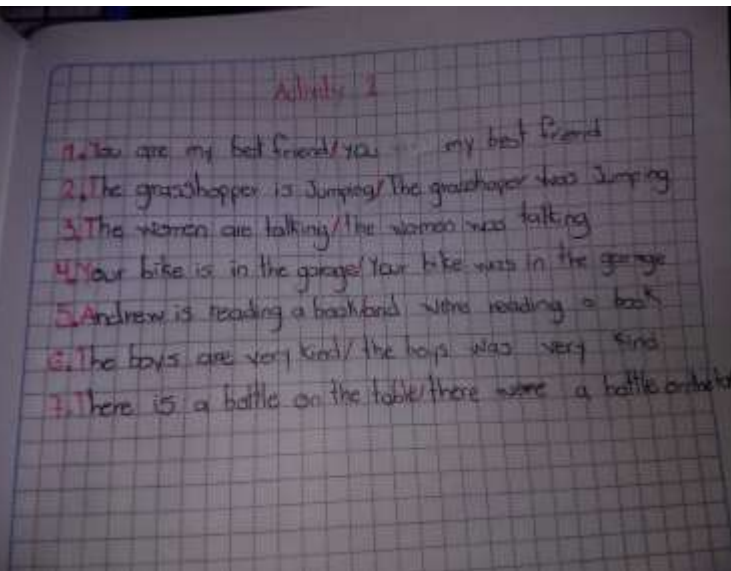 Activity 2
1. You are my best friend/you my best friend
2. The grasshopper is Jumping/The grasshoper was Jumping
3. The women are talking/The women was talking
4. Your bike is in the garage/Your bike was in the garage
5. Andrew is reading a book/and were reading a book
6. The boys are very kind/the boys was very kind
7. There is a bottle on the table/there were a bottle on the